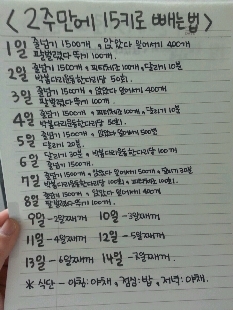 <2주만에 15키로 빼는법>
1일 줄넘기 1500개, 앉았다 일어서기 400개
팔벌렸다 뛰기 100개.
2일 줄넘기 1500개, 100개, 달리기 10분
50회.
3일 줄넘기 1500개, 앉았다 일어서기 400개
팔벌렸다 뛰기 100개.
4일 줄넘기 1500개, 100개, 달리기 10분
50회.
5일 줄넘기 1500개, 앉았다 일어서기 500번
달리기 20분.
6일 달리기 30분, 100개
줄넘기 1500개.
7일 줄넘기 1500개, 앉았다 일어서기 500개, 30분
100회, 100회.
8일 줄넘기 1500개, 앉았다 일어서기 400개
팔벌렸다 뛰기 100개.
9일 - 2일째꺼 10일 - 3일째꺼
11일 - 4일째꺼 12일 - 5일째꺼
13일 - 6일째꺼 14일 - 7일째꺼.
※ 식단 - 아침:야채, 점심:밥, 저녁:야채.